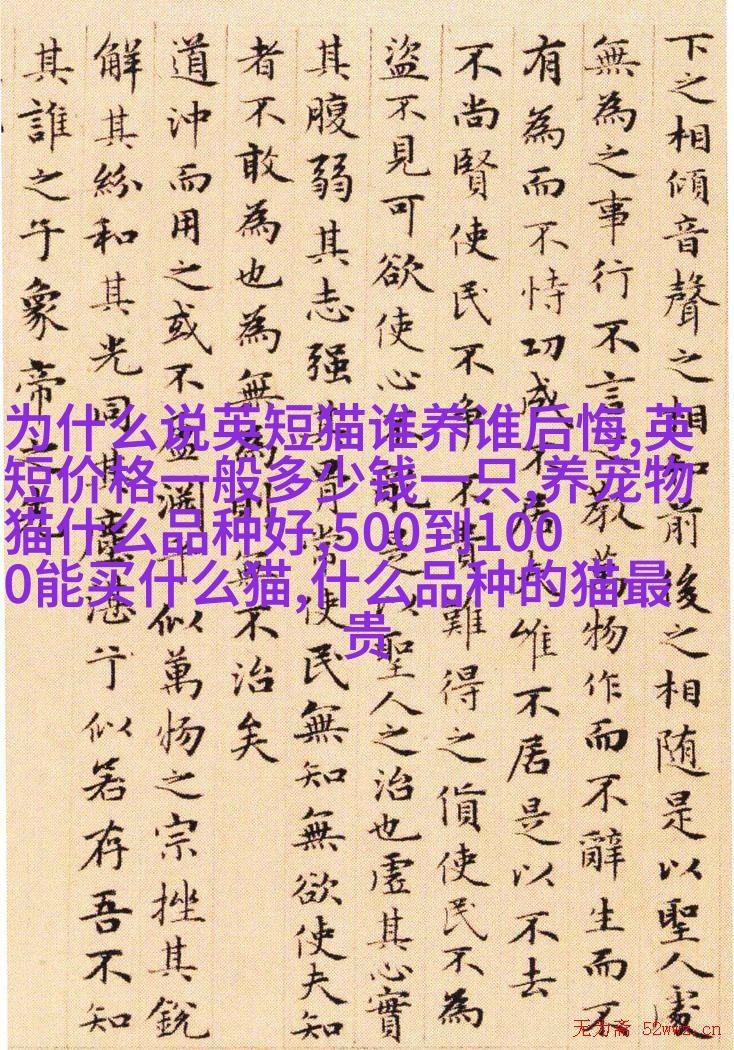 下之相傾音聲之相和前後之相随是以聖人處
無為之事行不言之教萬物作而不辭生而不
有為而不恃功成不居夫惟不居是以不去
不尚賢使民不争不貴難得之貨使民不為
盜不見可欲使心不亂是以聖人之治也虛其心實
其腹弱其志强其骨常使民無知無欲使夫知
者不敢為也為無為則無不治矣
道沖而用之或不盈淵乎似萬物之宗挫其銳
解其紛和其光同其塵湛兮似若存吾不知
其誰之子象帝之先
为什么说英短猫谁养谁后悔,英
短价格一般多少钱一只,养宠物
猫什么品种好,500到100
0能买什么猫,什么品种的猫最
贵
无为斋 52wwz.cn